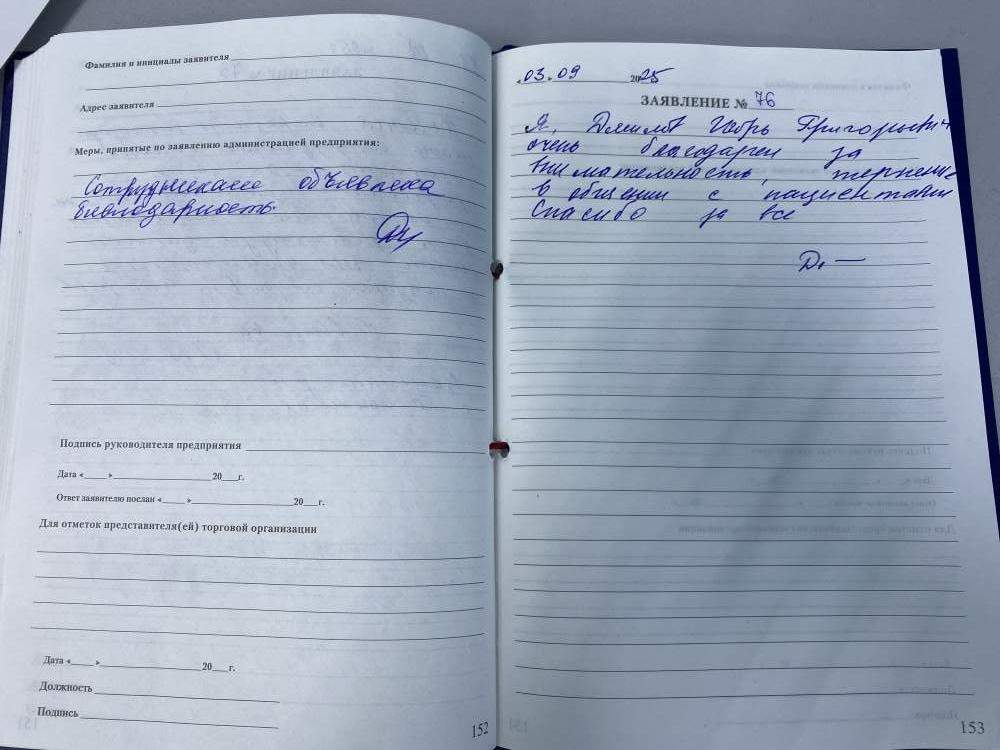 Фамилия и инициалы заявителя
Адрес заявителя
Меры, принятые по заявлению администрацией предприятия:
Сотрудникам объявлена
благодарность.
Подпись руководителя предприятия
Дата « » 20 г.
Ответ заявителю послан « » 20 г.
Для отметок представителя(ей) торговой организации
Дата « » 20 г.
Должность
Подпись
152
«03.» 09 2025
ЗАЯВЛЕНИЕ № 76
Я, Игорь Григорьевич
очень благодарен за
внимательность, терпение
в общении с пациентами
Спасибо за все
153